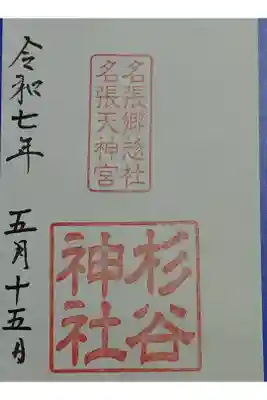 名張郷総社
名張天神宮
杉谷
神社
令和七年 五月十五日